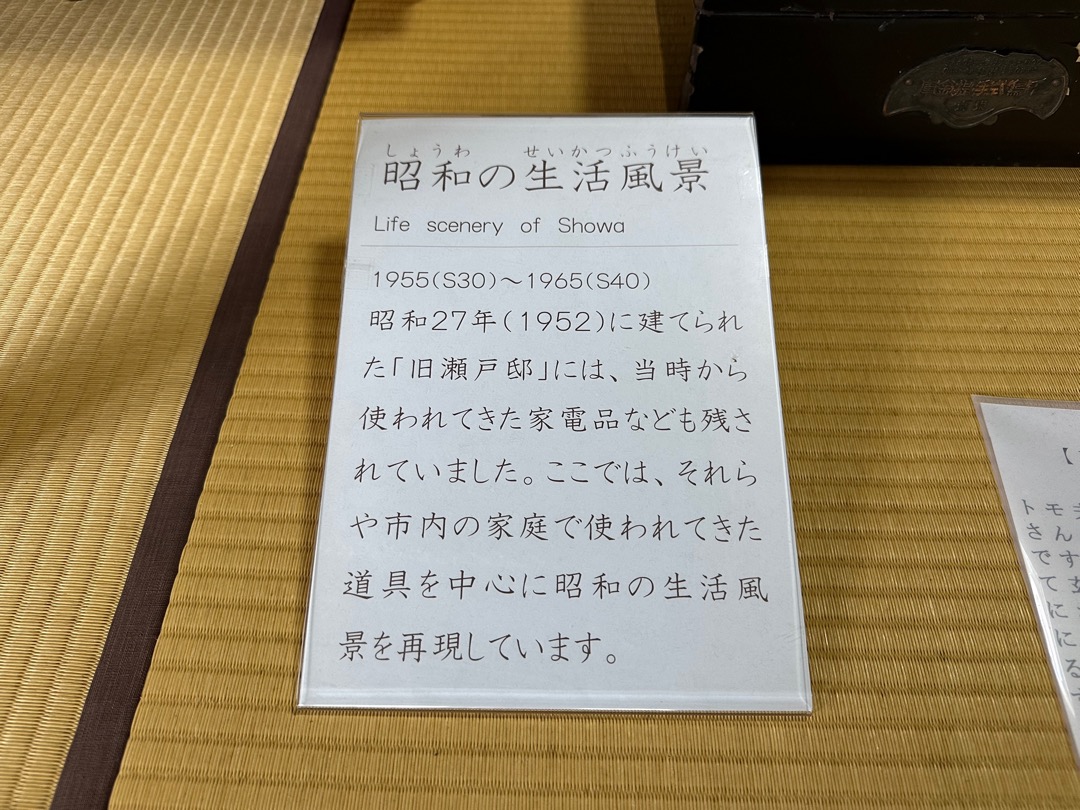 しょうわ せいかつふうけい
昭和の生活風景
Life scenery of Showa
1955(S30)～1965(S40)
昭和27年(1952)に建てられ
た「旧瀬戸邸」には、当時から
使われてきた家電品なども残さ
れていました。ここでは、それら
や市内の家庭で使われてきた
道具を中心に昭和の生活風
景を再現しています。
トモ
さん
です
て
に
に
る